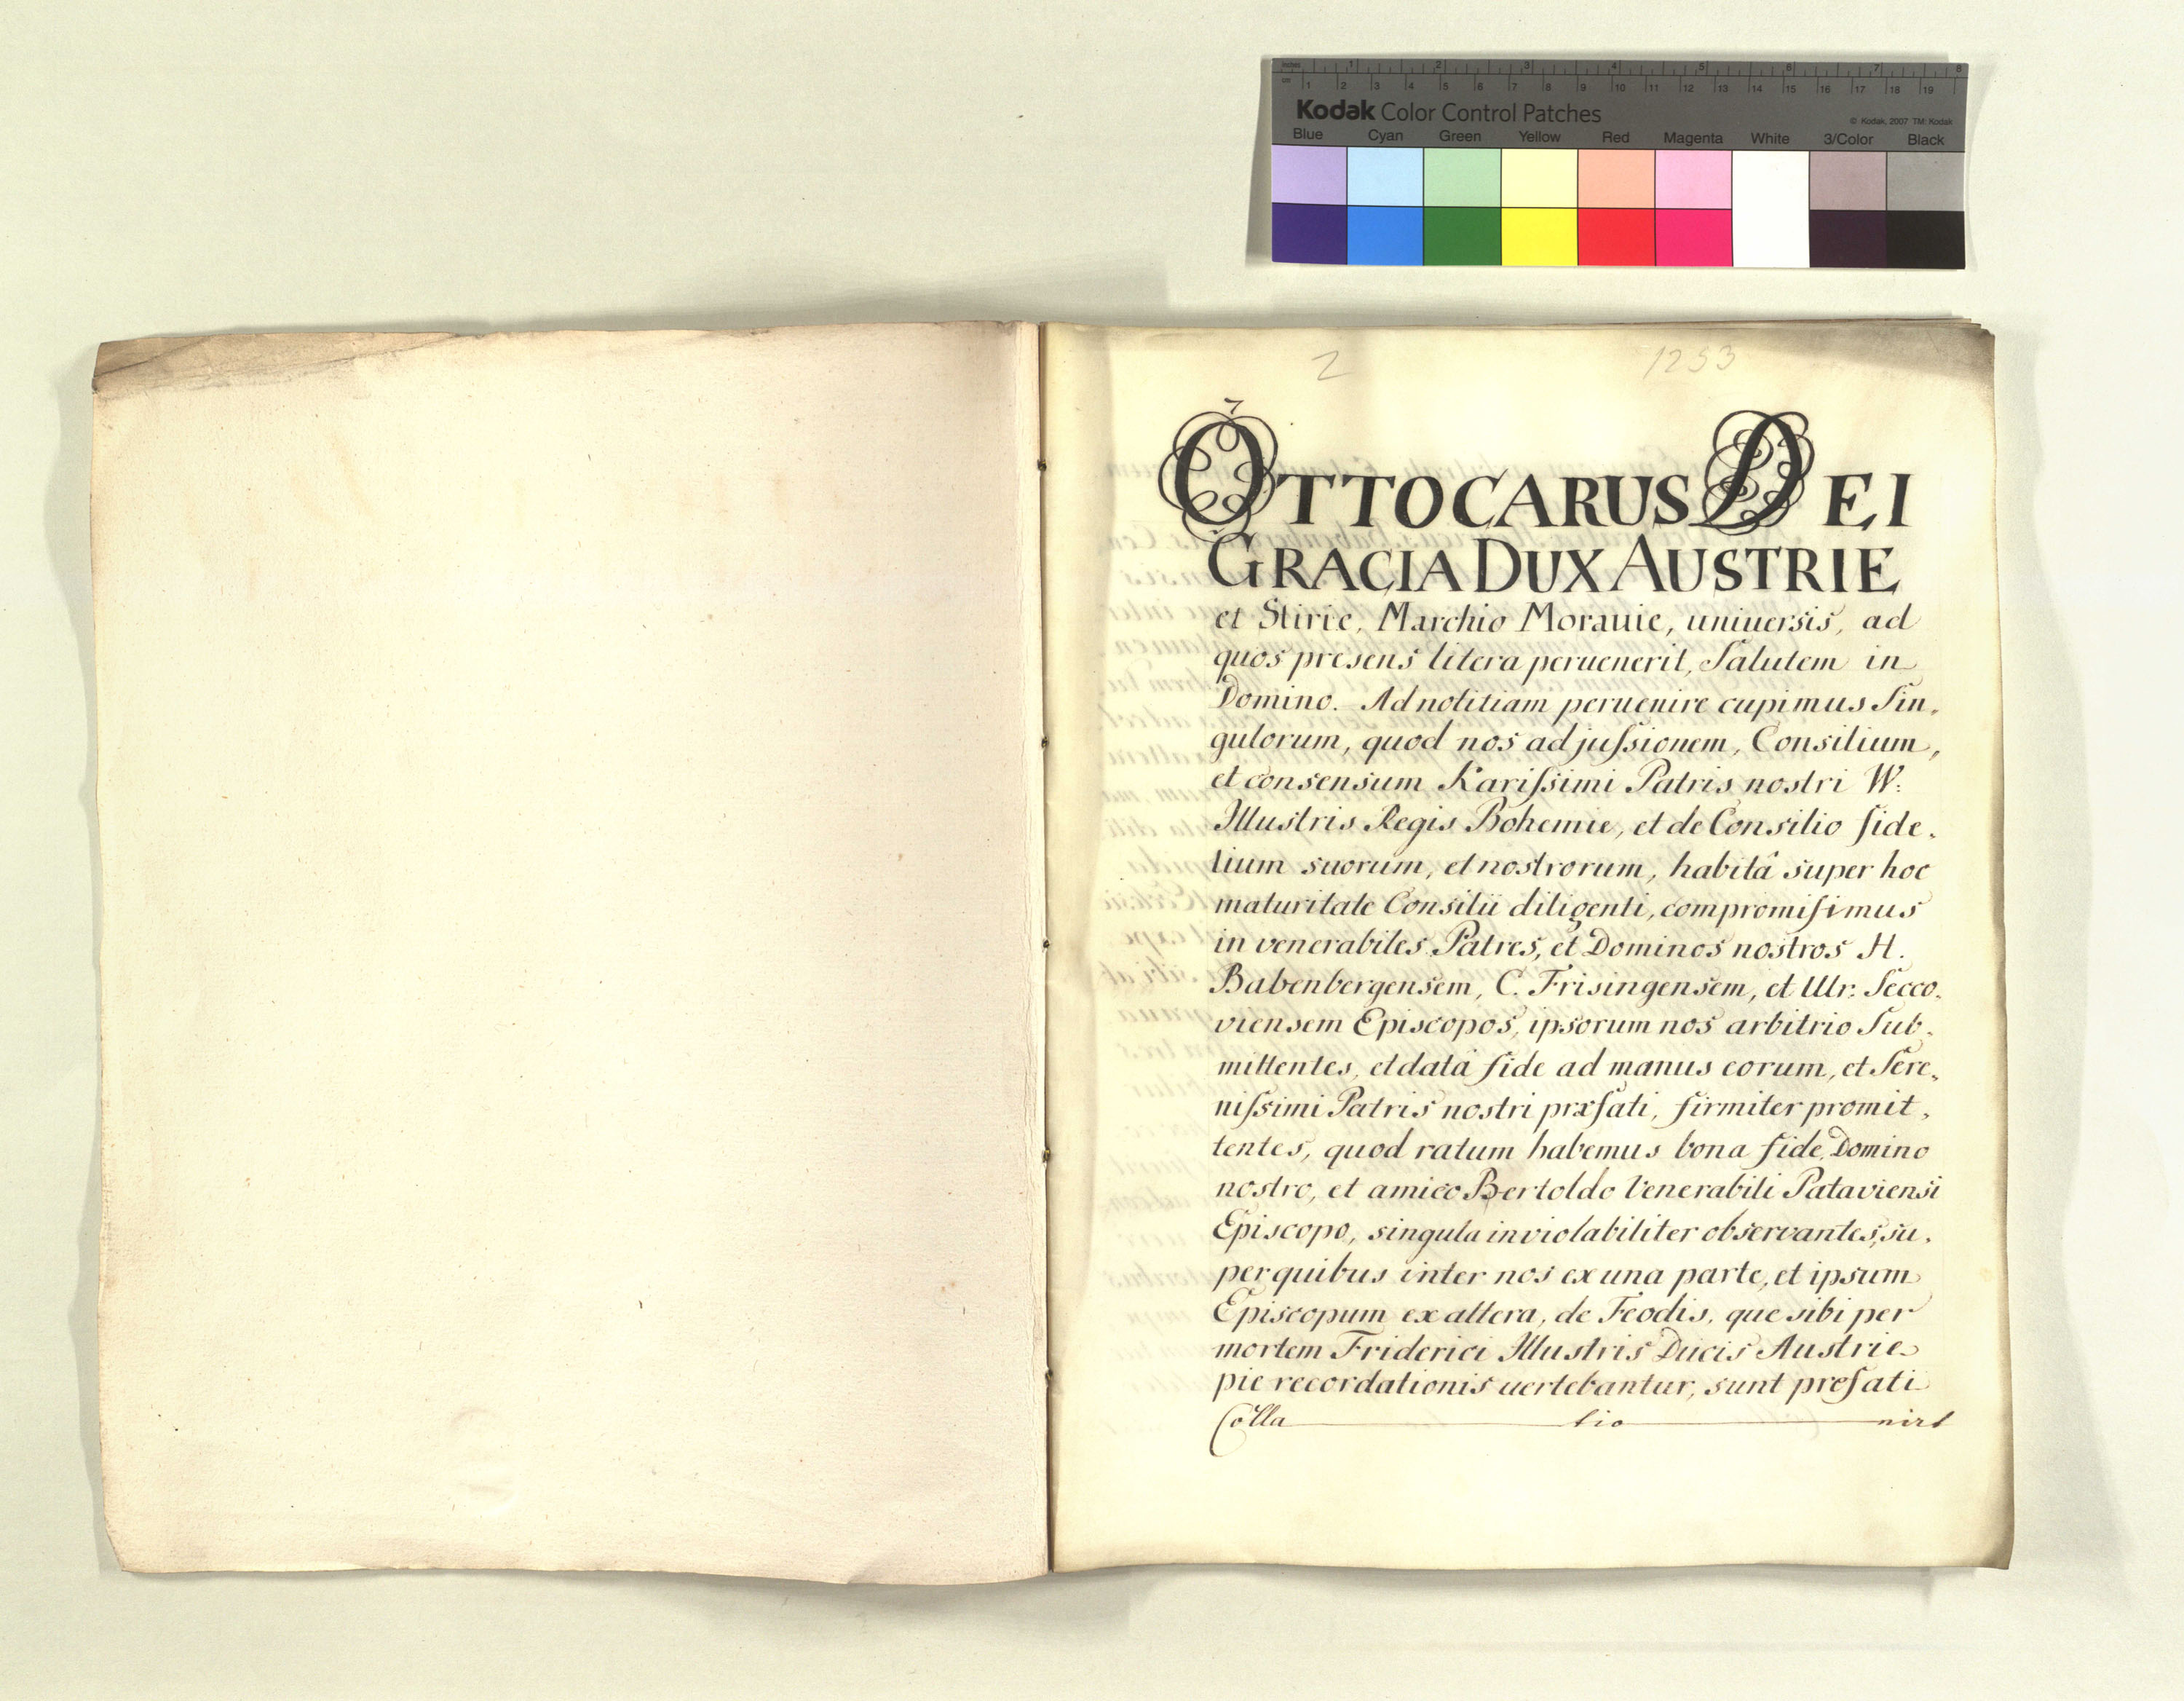 inches 1 2 3 4 5 6 7 8
cm 1 2 3 4 5 6 7 8 9 10 11 12 13 14 15 16 17 18 19
Kodak Color Control Patches
© Kodak, 2007 TM: Kodak
Blue Cyan Green Yellow Red Magenta White 3/Color Black
2 1253
OTTOCARUS DEI
GRACIA DUX AUSTRIE
et Stirie, Marchio Morauie, uniuersis, ad
quos presens litera peruenerit, Salutem in
Domino. Ad notitiam peruenire cupimus Sin,
gulorum, quod nos ad juſsionem, Consilium,
et consensum Kariſsimi Patris nostri W:
Illustris Regis Bohemie, et de Consilio fide,
lium suorum, et nostrorum, habitâ super hoc
maturitate Consilii diligenti, compromiſimus
in venerabiles Patres, et Dominos nostros H.
Babenbergensem, C. Frisingensem, et Ulr: Secco,
viensem Episcopos, ipsorum nos arbitrio Sub,
mittentes, et datâ fide ad manus eorum, et Sere,
niſsimi Patris nostri præfati, firmiter promit,
tentes, quod ratum habemus bona fide, Domino
nostro, et amico Bertoldo Venerabili Pataviensi
Episcopo, singula inviolabiliter observantes, su,
per quibus inter nos ex una parte, et ipsum
Episcopum ex altera, de Feodis, que sibi per
mortem Friderici Illustris Ducis Austrie
pie recordationis uertebantur, sunt prefati
Colla tio nirt